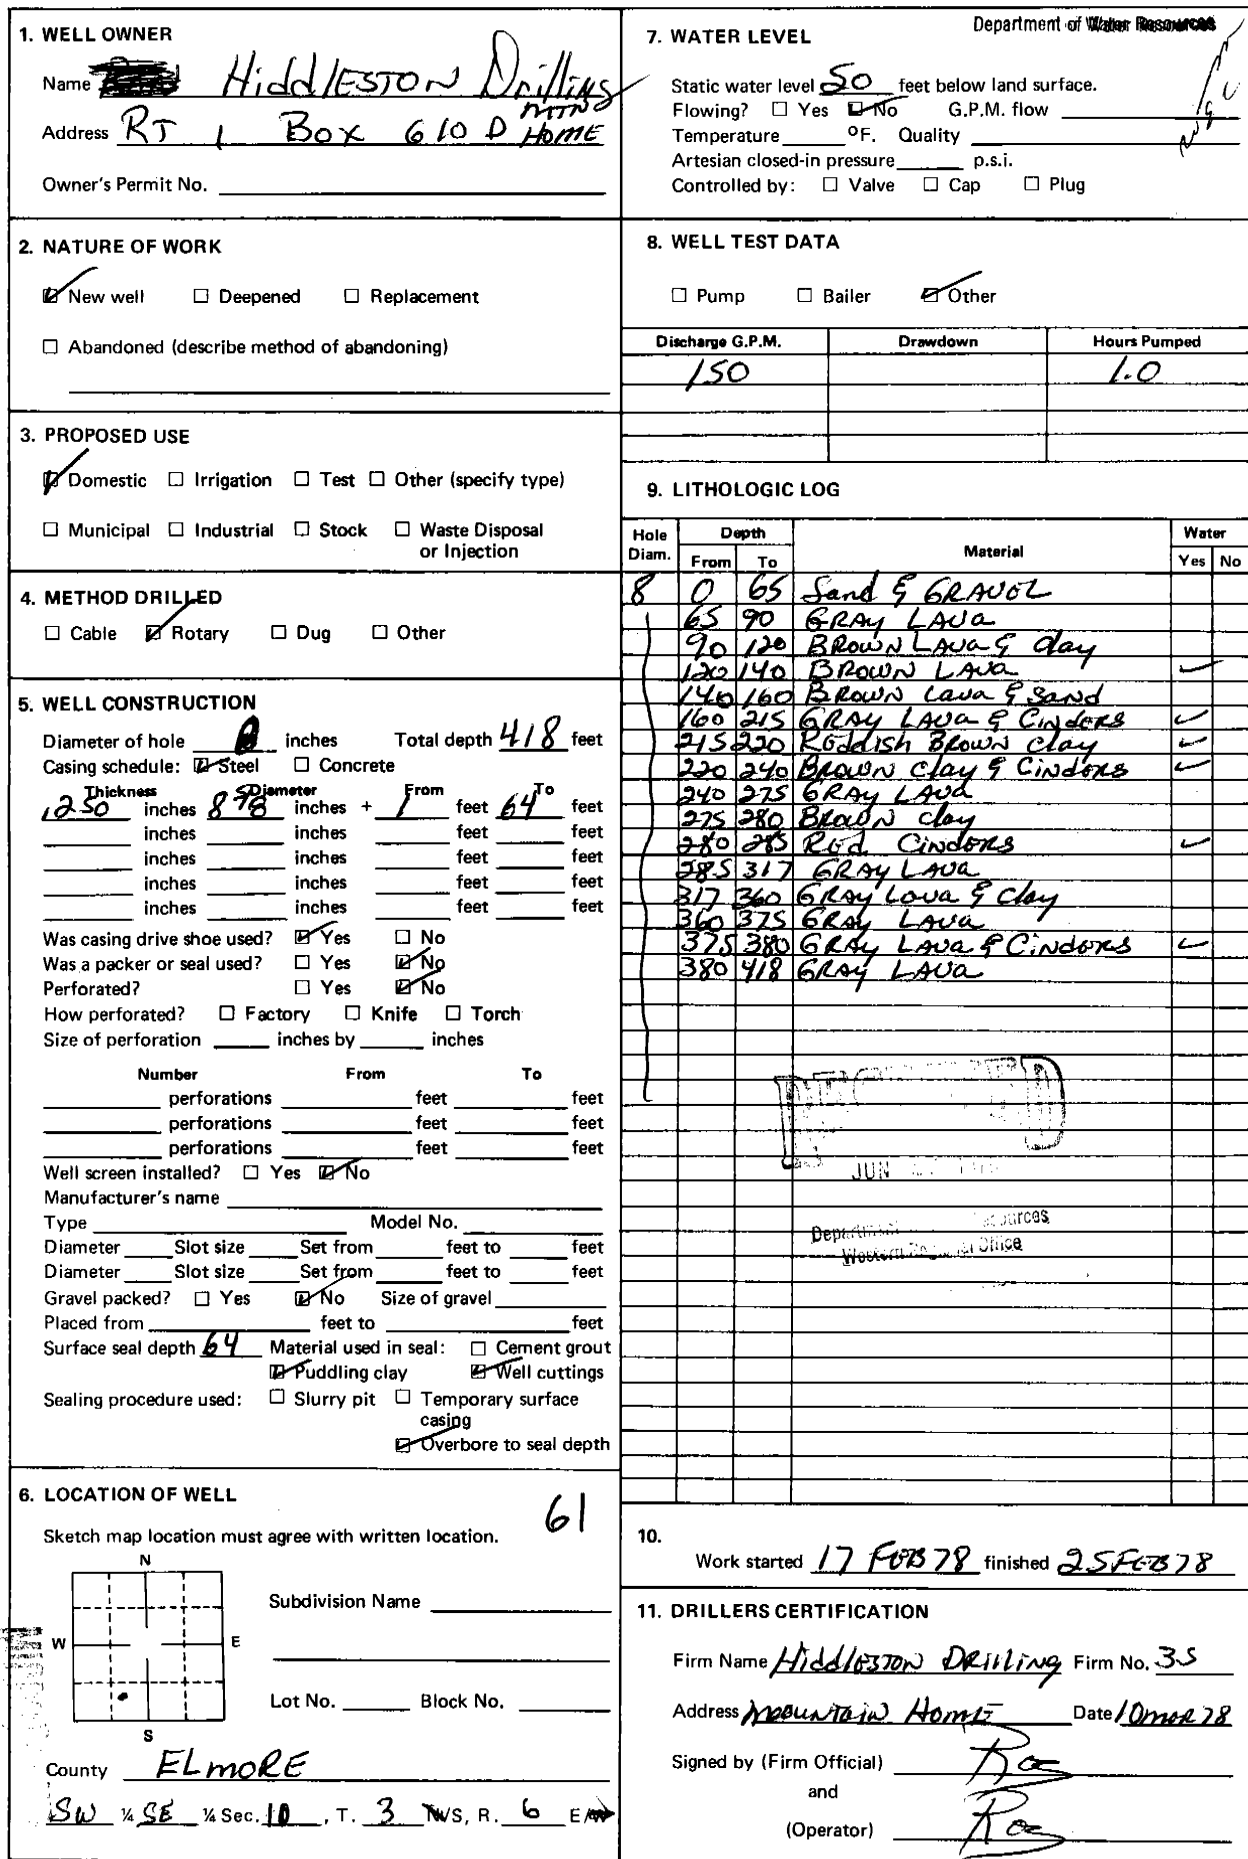 Department of Water Resources
1. WELL OWNER
Name Hiddleston Drilling
Address RT 1 Box 610 D MTN HOME
Owner's Permit No.
2. NATURE OF WORK
New well Deepened Replacement
Abandoned (describe method of abandoning)
3. PROPOSED USE
Domestic Irrigation Test Other (specify type)
Municipal Industrial Stock Waste Disposal
or Injection
4. METHOD DRILLED
Cable Rotary Dug Other
5. WELL CONSTRUCTION
Diameter of hole inches Total depth 418 feet
Casing schedule: Steel Concrete
Thickness Diameter From To
.250 inches 8 5/8 inches + 1 feet 64 feet
inches inches feet feet
inches inches feet feet
inches inches feet feet
inches inches feet feet
Was casing drive shoe used? Yes No
Was a packer or seal used? Yes No
Perforated? Yes No
How perforated? Factory Knife Torch
Size of perforation inches by inches
Number From To
perforations feet feet
perforations feet feet
perforations feet feet
Well screen installed? Yes No
Manufacturer's name
Type Model No.
Diameter Slot size Set from feet to feet
Diameter Slot size Set from feet to feet
Gravel packed? Yes No Size of gravel
Placed from feet to feet
Surface seal depth 64 Material used in seal: Cement grout
Puddling clay Well cuttings
Sealing procedure used: Slurry pit Temporary surface
casing
Overbore to seal depth
6. LOCATION OF WELL
61
Sketch map location must agree with written location.
N
Subdivision Name
W E
Lot No. Block No.
S
County ELmORE
SW ¼ SE ¼ Sec. 10, T. 3 N/S, R. 6 E/W
7. WATER LEVEL
Static water level 50 feet below land surface.
Flowing? Yes No G.P.M. flow
Temperature °F. Quality
Artesian closed-in pressure p.s.i.
Controlled by: Valve Cap Plug
8. WELL TEST DATA
Pump Bailer Other
Discharge G.P.M. Drawdown Hours Pumped
150 1.0
9. LITHOLOGIC LOG
Hole Diam. Depth Material Water
From To Yes No
8 0 65 Sand & GRAVEL
65 90 GRAY LAVA
90 120 BROWN LAVA & Clay
120 140 BROWN LAVA ✓
140 160 BROWN Lava & SAND
160 215 GRAY LAVA & CiNDERS ✓
215 220 REddiSH BROWN Clay ✓
220 240 BROWN Clay & CiNdERS ✓
240 275 GRAY LAVA
275 280 BROWN Clay
280 285 REd CiNDERS ✓
285 317 GRAY LAVA
317 360 GRAY Lova & Clay
360 375 GRAY LAVA
375 380 GRAY LAVA & CiNDERS ✓
380 418 GRAY LAVA
JUN
Department Resources
Western Regional Office
10.
Work started 17 FEB 78 finished 25 FEB 78
11. DRILLERS CERTIFICATION
Firm Name Hiddleston DRilling Firm No. 35
Address Mountain Home Date 10 mar 78
Signed by (Firm Official)
and
(Operator)